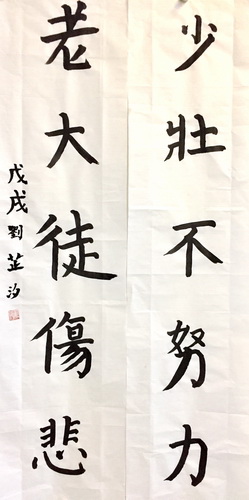 少壯不努力
老大徒傷悲
戊戌劉芷汐